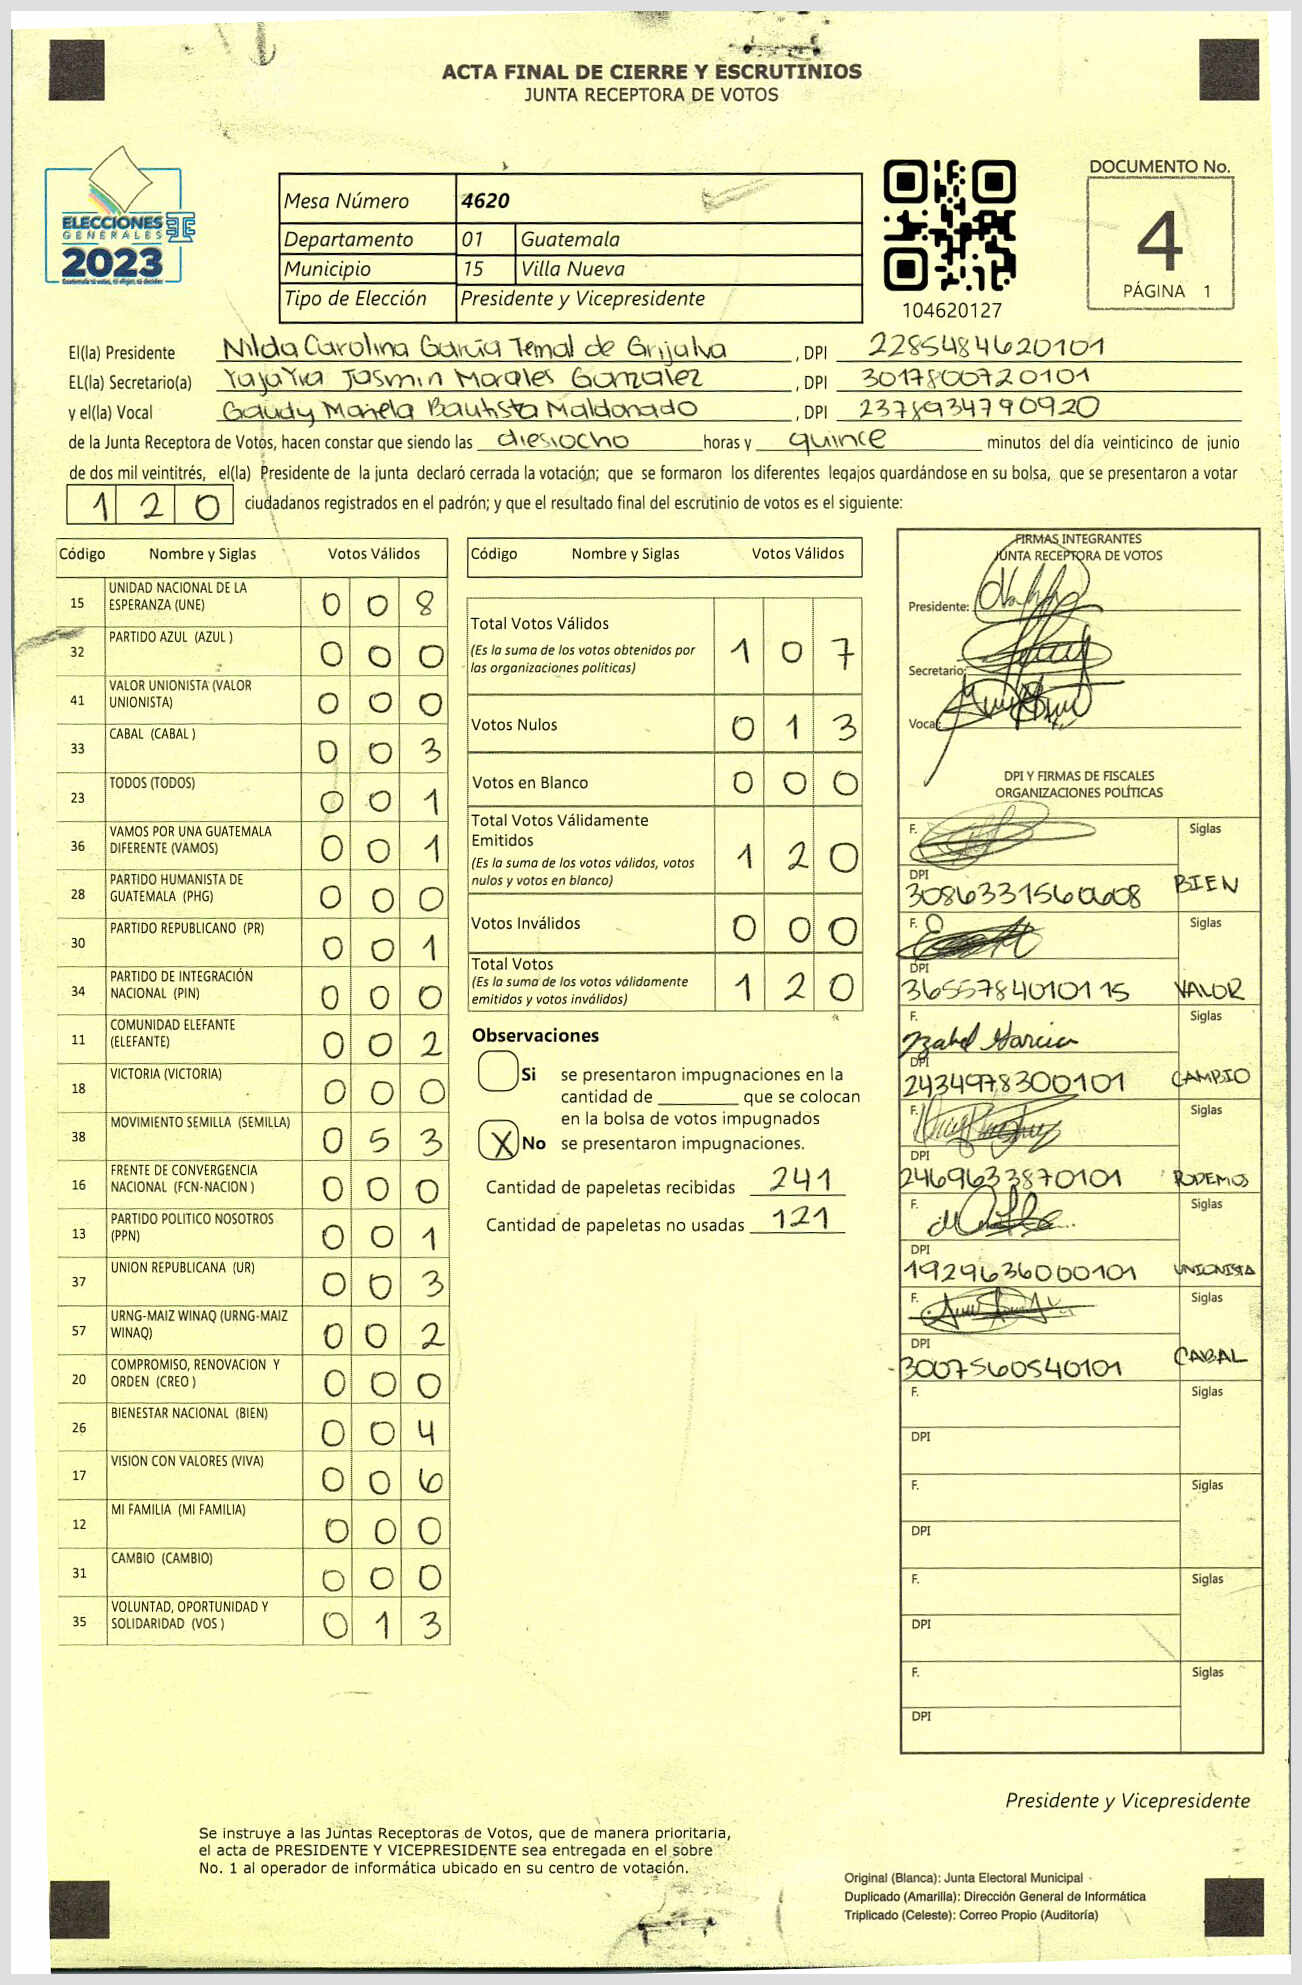 ACTA FINAL DE CIERRE Y ESCRUTINIOS
JUNTA RECEPTORA DE VOTOS
ELECCIONES
GENERALES
2023
Mesa Número 4620
Departamento 01 Guatemala
Municipio 15 Villa Nueva
Tipo de Elección Presidente y Vicepresidente
104620127
DOCUMENTO No.
4
PÁGINA 1
El(la) Presidente Nilda Carolina García Temal de Grijalva , DPI 2285484620101
EL(la) Secretario(a) Yajayra Jasmin Morales Gonzalez , DPI 3017800720101
y el(la) Vocal Gaudy Mariela Bautista Maldonado , DPI 2378934790920
de la Junta Receptora de Votos, hacen constar que siendo las diesiocho horas y quince minutos del día veinticinco de junio
de dos mil veintitrés, el(la) Presidente de la junta declaró cerrada la votación; que se formaron los diferentes legajos quardándose en su bolsa, que se presentaron a votar
120 ciudadanos registrados en el padrón; y que el resultado final del escrutinio de votos es el siguiente:
Código Nombre y Siglas Votos Válidos
15 UNIDAD NACIONAL DE LA ESPERANZA (UNE) 0 0 8
32 PARTIDO AZUL (AZUL ) 0 0 0
41 VALOR UNIONISTA (VALOR UNIONISTA) 0 0 0
33 CABAL (CABAL ) 0 0 3
23 TODOS (TODOS) 0 0 1
36 VAMOS POR UNA GUATEMALA DIFERENTE (VAMOS) 0 0 1
28 PARTIDO HUMANISTA DE GUATEMALA (PHG) 0 0 0
30 PARTIDO REPUBLICANO (PR) 0 0 1
34 PARTIDO DE INTEGRACIÓN NACIONAL (PIN) 0 0 0
11 COMUNIDAD ELEFANTE (ELEFANTE) 0 0 2
18 VICTORIA (VICTORIA) 0 0 0
38 MOVIMIENTO SEMILLA (SEMILLA) 0 5 3
16 FRENTE DE CONVERGENCIA NACIONAL (FCN-NACION ) 0 0 0
13 PARTIDO POLITICO NOSOTROS (PPN) 0 0 1
37 UNION REPUBLICANA (UR) 0 0 3
57 URNG-MAIZ WINAQ (URNG-MAIZ WINAQ) 0 0 2
20 COMPROMISO, RENOVACION Y ORDEN (CREO ) 0 0 0
26 BIENESTAR NACIONAL (BIEN) 0 0 4
17 VISION CON VALORES (VIVA) 0 0 6
12 MI FAMILIA (MI FAMILIA) 0 0 0
31 CAMBIO (CAMBIO) 0 0 0
35 VOLUNTAD, OPORTUNIDAD Y SOLIDARIDAD (VOS ) 0 1 3
Código Nombre y Siglas Votos Válidos
Total Votos Válidos 1 0 7
(Es la suma de los votos obtenidos por
las organizaciones políticas)
Votos Nulos 0 1 3
Votos en Blanco 0 0 0
Total Votos Válidamente
Emitidos 1 2 0
(Es la suma de los votos válidos, votos
nulos y votos en blanco)
Votos Inválidos 0 0 0
Total Votos 1 2 0
(Es la suma de los votos válidamente
emitidos y votos inválidos)
Observaciones
Si se presentaron impugnaciones en la
cantidad de ________ que se colocan
en la bolsa de votos impugnados
X No se presentaron impugnaciones.
Cantidad de papeletas recibidas 241
Cantidad de papeletas no usadas 121
FIRMAS INTEGRANTES
JUNTA RECEPTORA DE VOTOS
Presidente:
Secretario:
Vocal:
DPI Y FIRMAS DE FISCALES
ORGANIZACIONES POLÍTICAS
F. Siglas
DPI
BIEN
F. Siglas
DPI
3655784010115 VALOR
F. Izabel Garcia Siglas
DPI
2434978300101 CAMBIO
F. Siglas
DPI
2469633870101 PODEMOS
F. Siglas
DPI
1929636000101 UNIONISTA
F. Siglas
DPI
3007560540101 CABAL
F. Siglas
DPI
F. Siglas
DPI
F. Siglas
DPI
F. Siglas
DPI
Presidente y Vicepresidente
Se instruye a las Juntas Receptoras de Votos, que de manera prioritaria,
el acta de PRESIDENTE Y VICEPRESIDENTE sea entregada en el sobre
No. 1 al operador de informática ubicado en su centro de votación.
Original (Blanca): Junta Electoral Municipal
Duplicado (Amarilla): Dirección General de Informática
Triplicado (Celeste): Correo Propio (Auditoría)